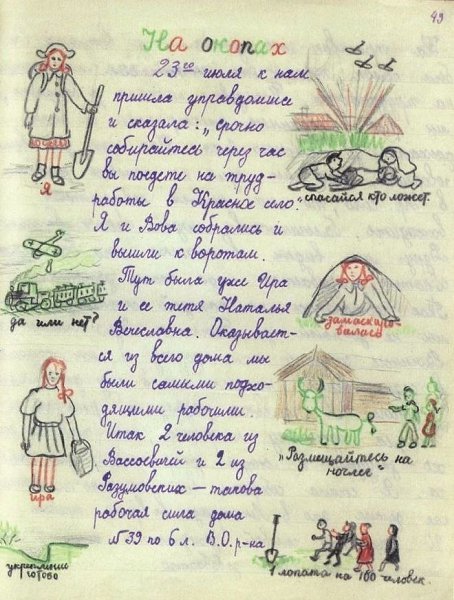 49
На окопах
23го июля к нам
пришла управдомша
и сказала: „срочно
собирайтесь через час
вы поедете на труд-
работы в Красное село.
Я и Вова собрались и
вышли к воротам.
Тут была уже Ира
и ее тетя Наталья
Вечеславна. Оказывает-
ся из всего дома мы
были самыми подхо-
дящими рабочими.
Итак 2 человека из
и 2 из
Разумовских — такова
рабочая сила дома
№ 39 по 6 л. В.О. р-на
Я
да или нет?
Ира
укрепление
готово
„спасайся кто может.
замаскиро-
валась
„Размещайтесь на
ночлег"
1 лопата на 100 человек.